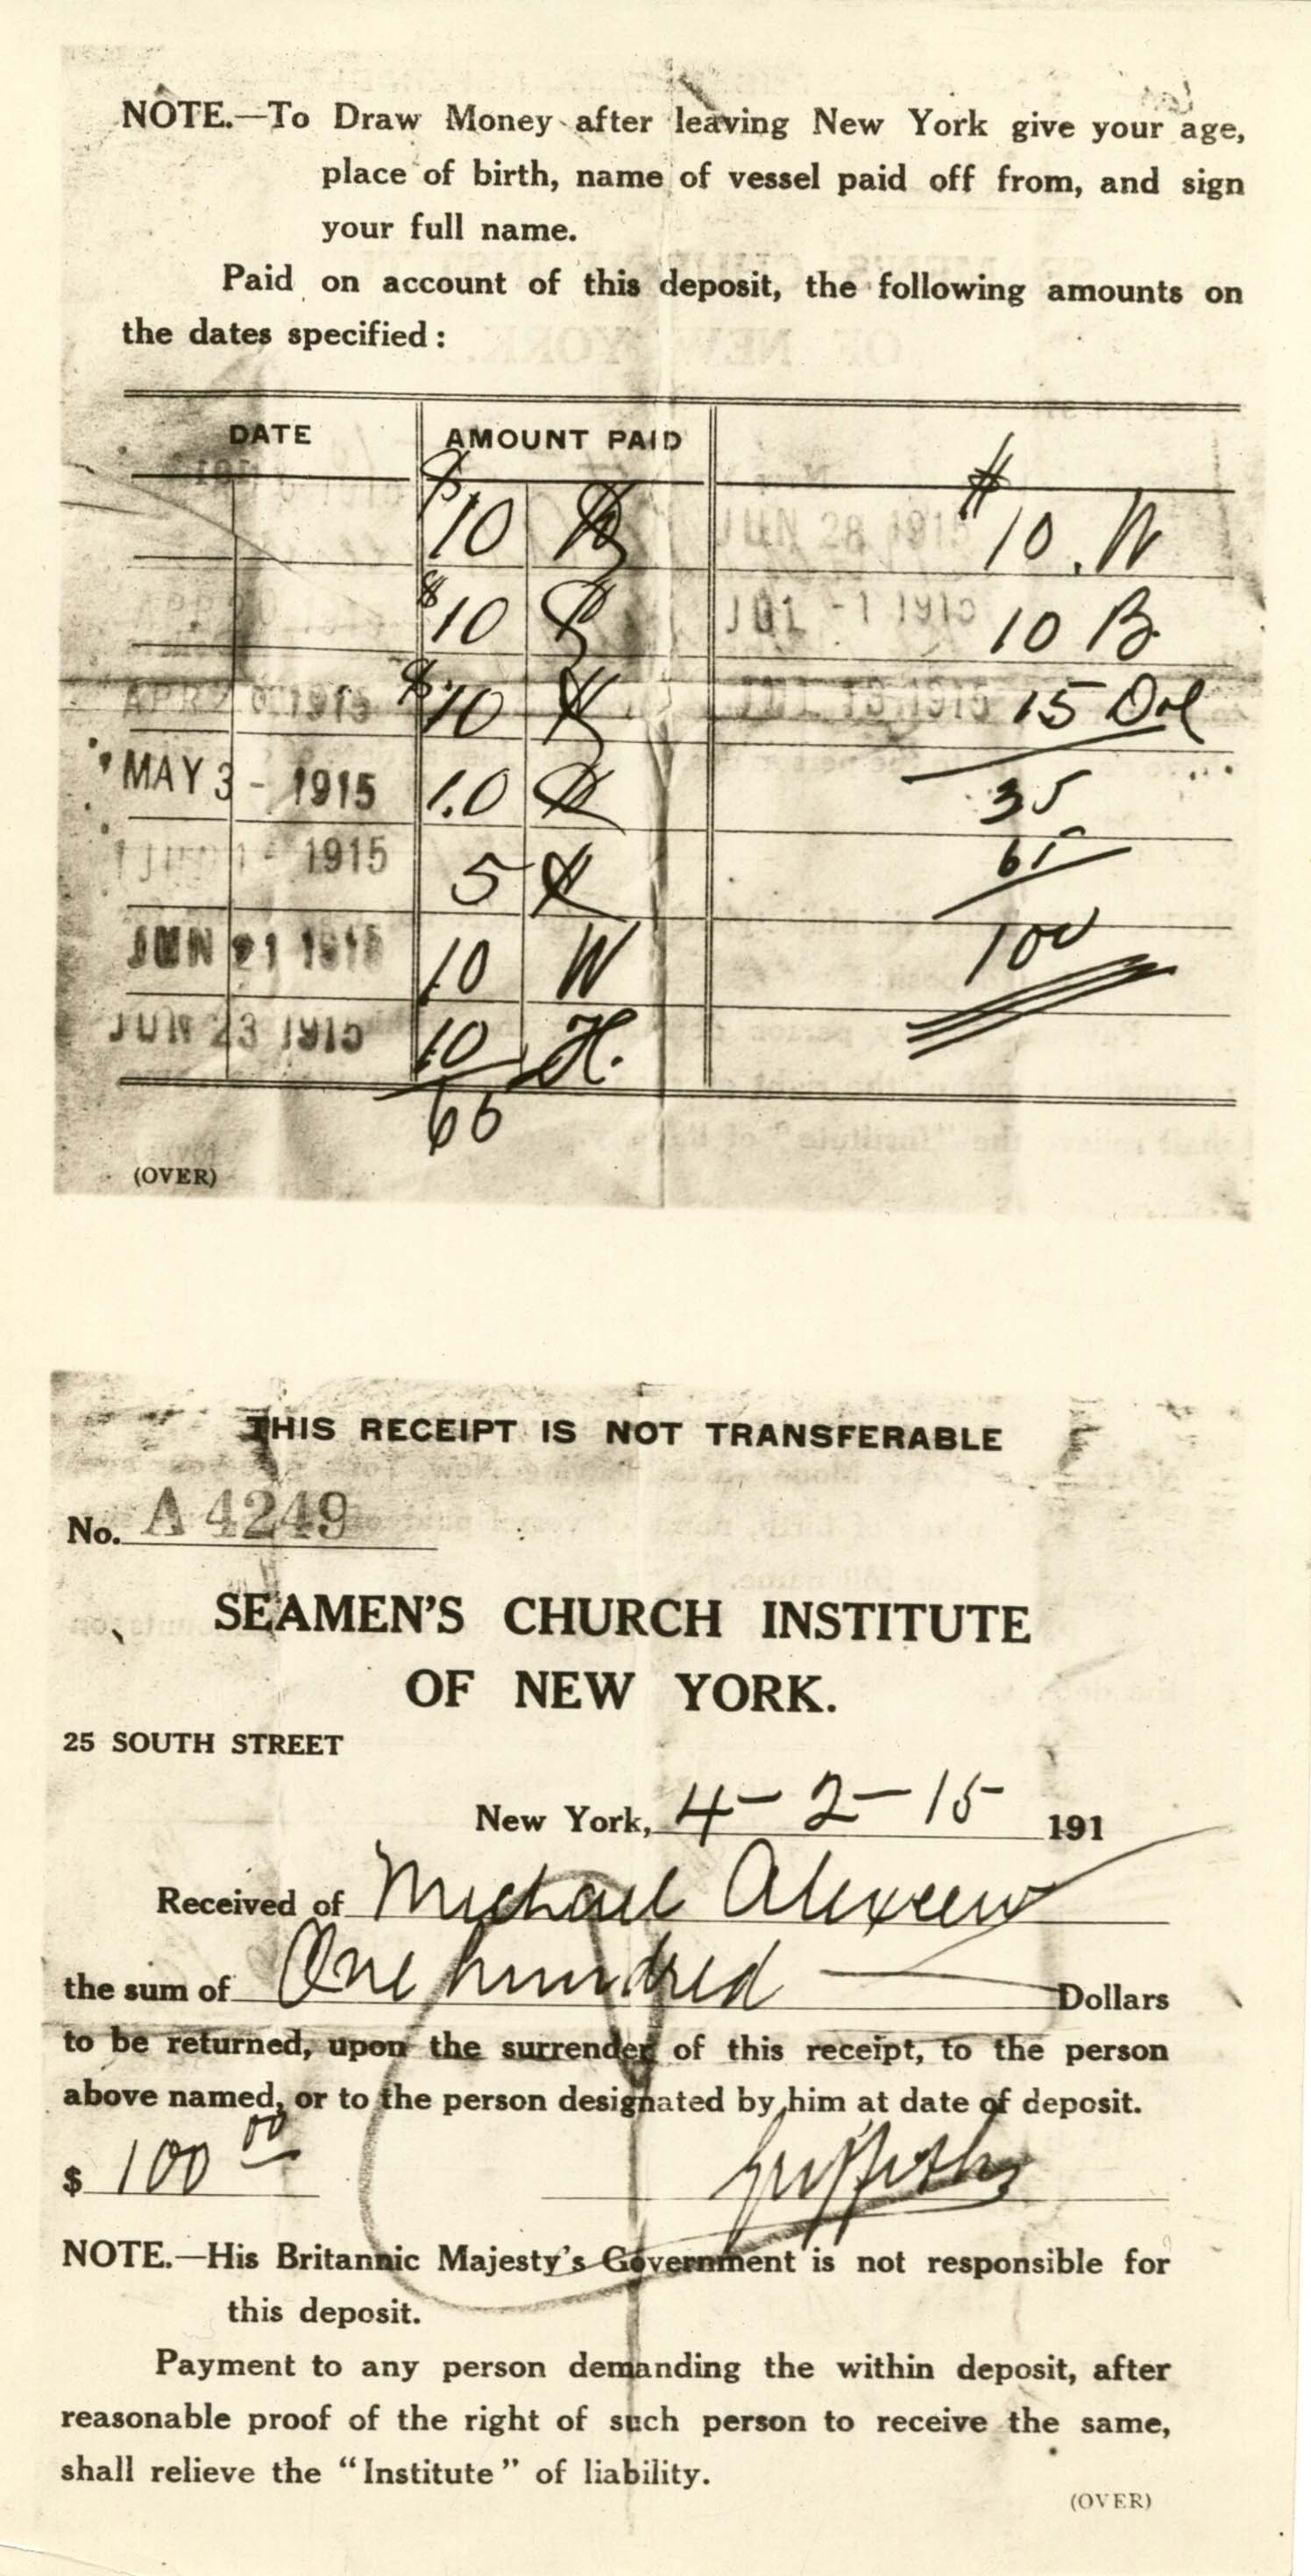 NOTE.—To Draw Money after leaving New York give your age,
place of birth, name of vessel paid off from, and sign
your full name.
Paid on account of this deposit, the following amounts on
the dates specified:
DATE AMOUNT PAID
$10 $ JUN 28 1915 10. W
$10 JUL -1 1915 10 B.
APR 1915 $10 1915 15 Del
MAY 3 - 1915 10 35
1915 5 65
JUN 21 1915 10 W 100
JUN 23 1915 10 H.
65
(OVER)
THIS RECEIPT IS NOT TRANSFERABLE
No. A 4249
SEAMEN'S CHURCH INSTITUTE
OF NEW YORK.
25 SOUTH STREET
New York, 4-2-15 191
Received of Michael Alexeew
the sum of One hundred Dollars
to be returned, upon the surrender of this receipt, to the person
above named, or to the person designated by him at date of deposit.
$ 100 00 Griffiths
NOTE.—His Britannic Majesty's Government is not responsible for
this deposit.
Payment to any person demanding the within deposit, after
reasonable proof of the right of such person to receive the same,
shall relieve the "Institute" of liability.
(OVER)